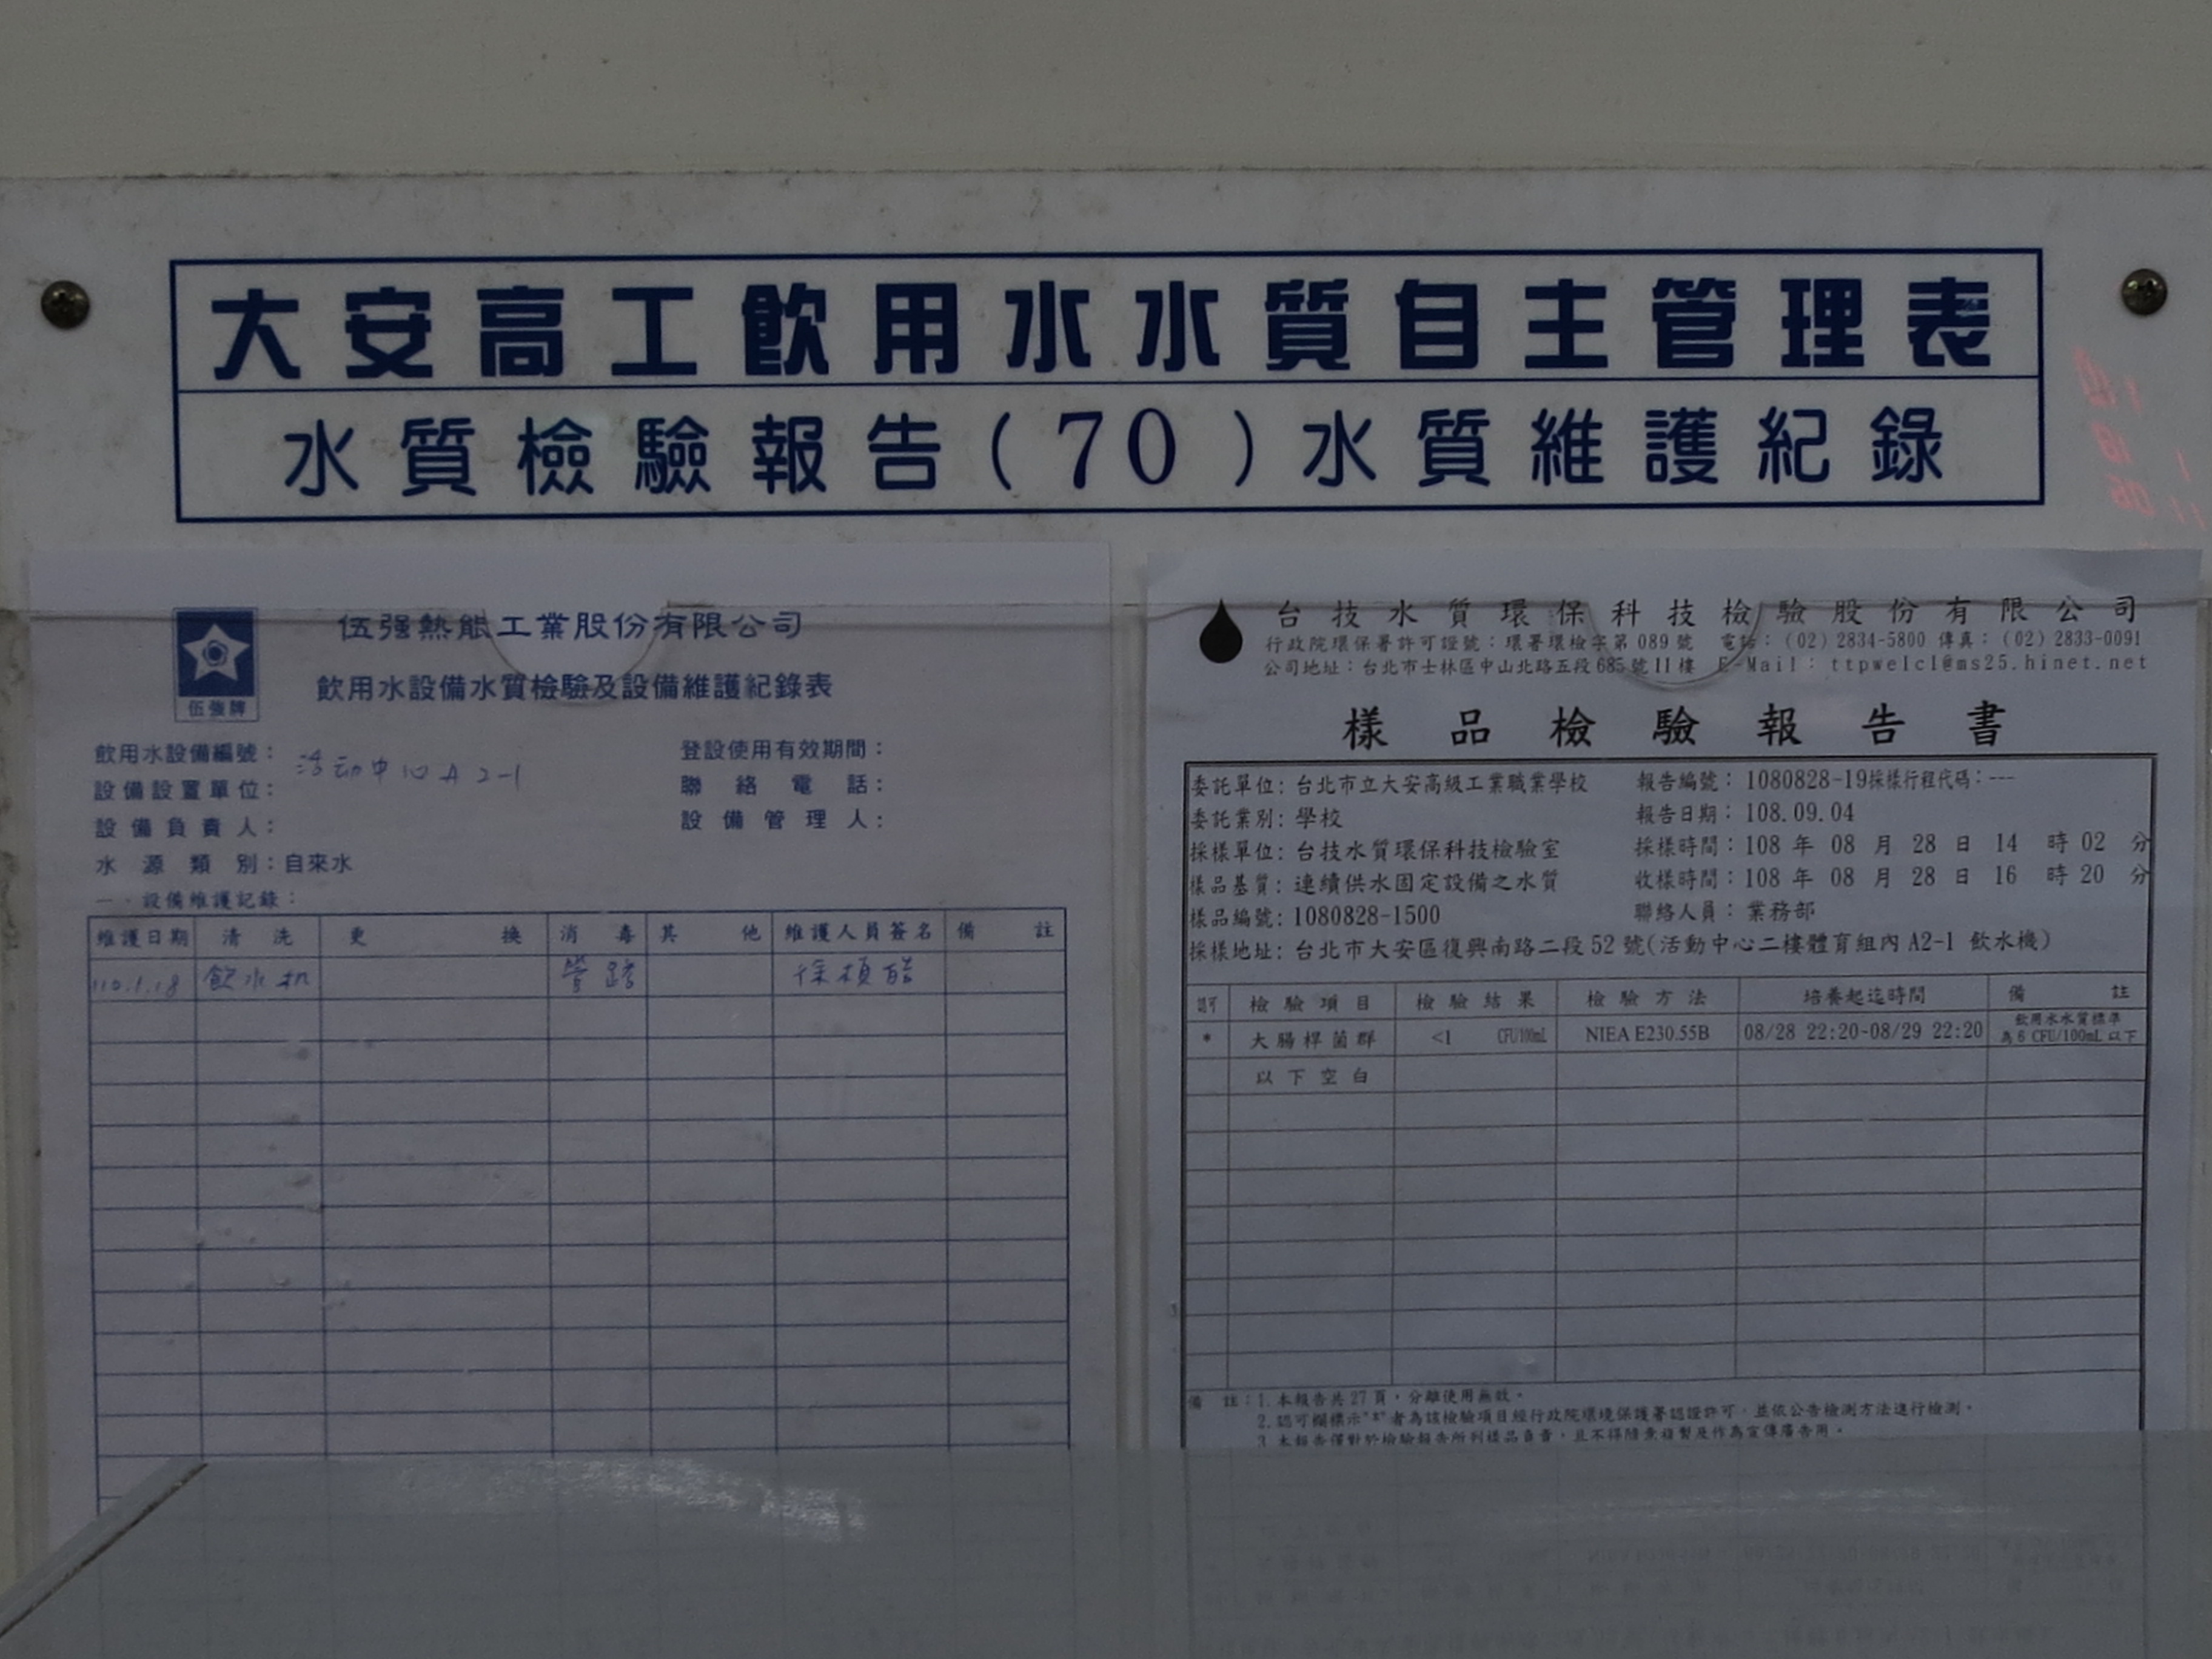 大安高工飲用水水質自主管理表
水質檢驗報告(70)水質維護紀錄
伍强熱能工業股份有限公司
飲用水設備水質檢驗及設備維護紀錄表
伍強牌
飲用水設備編號：
活动中心A2-1
設備設置單位：
設備負責人：
水源類別：自來水
登設使用有效期間：
聯絡電話：
設備管理人：
一．設備維護記錄：
維護日期 清洗 更換 消毒 其他 維護人員簽名 備註
110.1.18 飲水机 管路
台技水質環保科技檢驗股份有限公司
行政院環保署許可證號：環署環檢字第089號 電話：(02)2834-5800 傳真：(02)2833-0091
公司地址：台北市士林區中山北路五段685號11樓 E-Mail：ttpwelcl@ms25.hinet.net
樣品檢驗報告書
委託單位：台北市立大安高級工業職業學校 報告編號：1080828-19採樣行程代碼：---
委託業別：學校 報告日期：108.09.04
採樣單位：台技水質環保科技檢驗室 採樣時間：108 年 08 月 28 日 14 時 02 分
樣品基質：連續供水固定設備之水質 收樣時間：108 年 08 月 28 日 16 時 20 分
樣品編號：1080828-1500 聯絡人員：業務部
採樣地址：台北市大安區復興南路二段52號(活動中心二樓體育組內A2-1 飲水機)
認可 檢驗項目 檢驗結果 檢驗方法 培養起迄時間 備註
* 大腸桿菌群 <1 CFU/100mL NIEA E230.55B 08/28 22:20-08/29 22:20 飲用水水質標準
為6 CFU/100mL以下
以下空白
備註：1.本報告共27頁，分離使用無效。
2.認可欄標示"*"者為該檢驗項目經行政院環境保護署認證許可，並依公告檢測方法進行檢測。
3.本報告僅對於檢驗報告所列樣品負責，且不得隨意複製及作為宣傳廣告用。